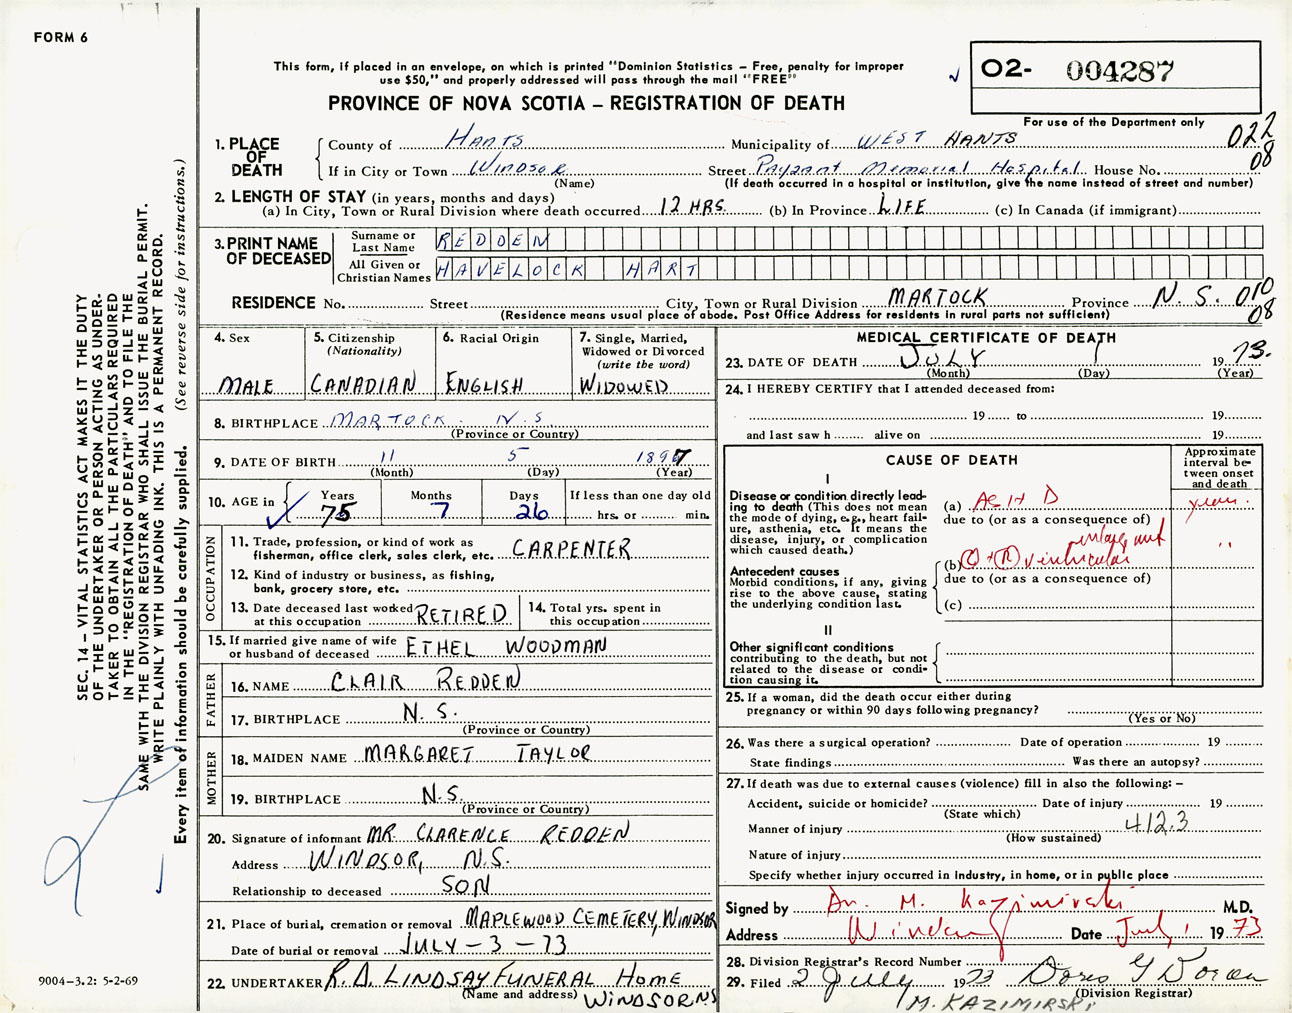 FORM 6
This form, if placed in an envelope, on which is printed "Dominion Statistics – Free, penalty for improper
use $50," and properly addressed will pass through the mail "FREE"
PROVINCE OF NOVA SCOTIA – REGISTRATION OF DEATH
O2- 004287
For use of the Department only
022
08
1. PLACE OF DEATH
County of HANTS Municipality of WEST HANTS
If in City or Town WINDSOR Street Payzant Memorial Hospital House No.
(Name) (If death occurred in a hospital or institution, give the name instead of street and number)
2. LENGTH OF STAY (in years, months and days)
(a) In City, Town or Rural Division where death occurred 12 HRS. (b) In Province LIFE (c) In Canada (if immigrant)
3. PRINT NAME OF DECEASED
Surname or Last Name REDDEN
All Given or Christian Names HAVELOCK HART
RESIDENCE No. Street City, Town or Rural Division MARTOCK Province N. S. 010
08
(Residence means usual place of abode. Post Office Address for residents in rural parts not sufficient)
4. Sex MALE
5. Citizenship (Nationality) CANADIAN
6. Racial Origin ENGLISH
7. Single, Married, Widowed or Divorced (write the word) WIDOWED
8. BIRTHPLACE MARTOCK N. S
(Province or Country)
9. DATE OF BIRTH 11 5 1897
(Month) (Day) (Year)
10. AGE in Years 75 Months 7 Days 26 If less than one day old
hrs. or min.
OCCUPATION
11. Trade, profession, or kind of work as
fisherman, office clerk, sales clerk, etc. CARPENTER
12. Kind of industry or business, as fishing,
bank, grocery store, etc.
13. Date deceased last worked at this occupation RETIRED 14. Total yrs. spent in this occupation
15. If married give name of wife
or husband of deceased ETHEL WOODMAN
FATHER
16. NAME CLAIR REDDEN
17. BIRTHPLACE N. S.
(Province or Country)
MOTHER
18. MAIDEN NAME MARGARET TAYLOR
19. BIRTHPLACE N.S.
(Province or Country)
20. Signature of informant MR. CLARENCE REDDEN
Address WINDSOR, N.S.
Relationship to deceased SON
21. Place of burial, cremation or removal MAPLEWOOD CEMETERY, WINDSOR
Date of burial or removal JULY - 3 - 73
22. UNDERTAKER R.D. LINDSAY FUNERAL HOME
(Name and address) WINDSOR NS
MEDICAL CERTIFICATE OF DEATH
23. DATE OF DEATH JULY 1 19 73.
(Month) (Day) (Year)
24. I HEREBY CERTIFY that I attended deceased from:
19 to 19
and last saw h alive on 19
CAUSE OF DEATH
Approximate interval between onset and death
I
Disease or condition directly leading to death (This does not mean the mode of dying, e.g., heart failure, asthenia, etc. It means the disease, injury, or complication which caused death.)
(a) ASHD years.
due to (or as a consequence of)
Antecedent causes
Morbid conditions, if any, giving rise to the above cause, stating the underlying condition last.
(b) L + R ventricular enlargement "
due to (or as a consequence of)
(c)
II
Other significant conditions
contributing to the death, but not related to the disease or condition causing it.
25. If a woman, did the death occur either during
pregnancy or within 90 days following pregnancy?
(Yes or No)
26. Was there a surgical operation? Date of operation 19
State findings Was there an autopsy?
27. If death was due to external causes (violence) fill in also the following: –
Accident, suicide or homicide? Date of injury 19
(State which)
Manner of injury 412.3
(How sustained)
Nature of injury
Specify whether injury occurred in Industry, in home, or in public place
Signed by Dr. M. Kazimirski M.D.
Address Windsor Date July 1 19 73
28. Division Registrar's Record Number
29. Filed 2 July 1973 Doris Y Doran
(Division Registrar)
M. KAZIMIRSKI
SEC. 14 – VITAL STATISTICS ACT MAKES IT THE DUTY
OF THE UNDERTAKER OR PERSON ACTING AS UNDER-
TAKER TO OBTAIN ALL THE PARTICULARS REQUIRED
IN THE "REGISTRATION OF DEATH" AND TO FILE THE
SAME WITH THE DIVISION REGISTRAR WHO SHALL ISSUE THE BURIAL PERMIT.
WRITE PLAINLY WITH UNFADING INK. THIS IS A PERMANENT RECORD.
Every item of information should be carefully supplied. (See reverse side for instructions.)
9004–3.2: 5-2-69